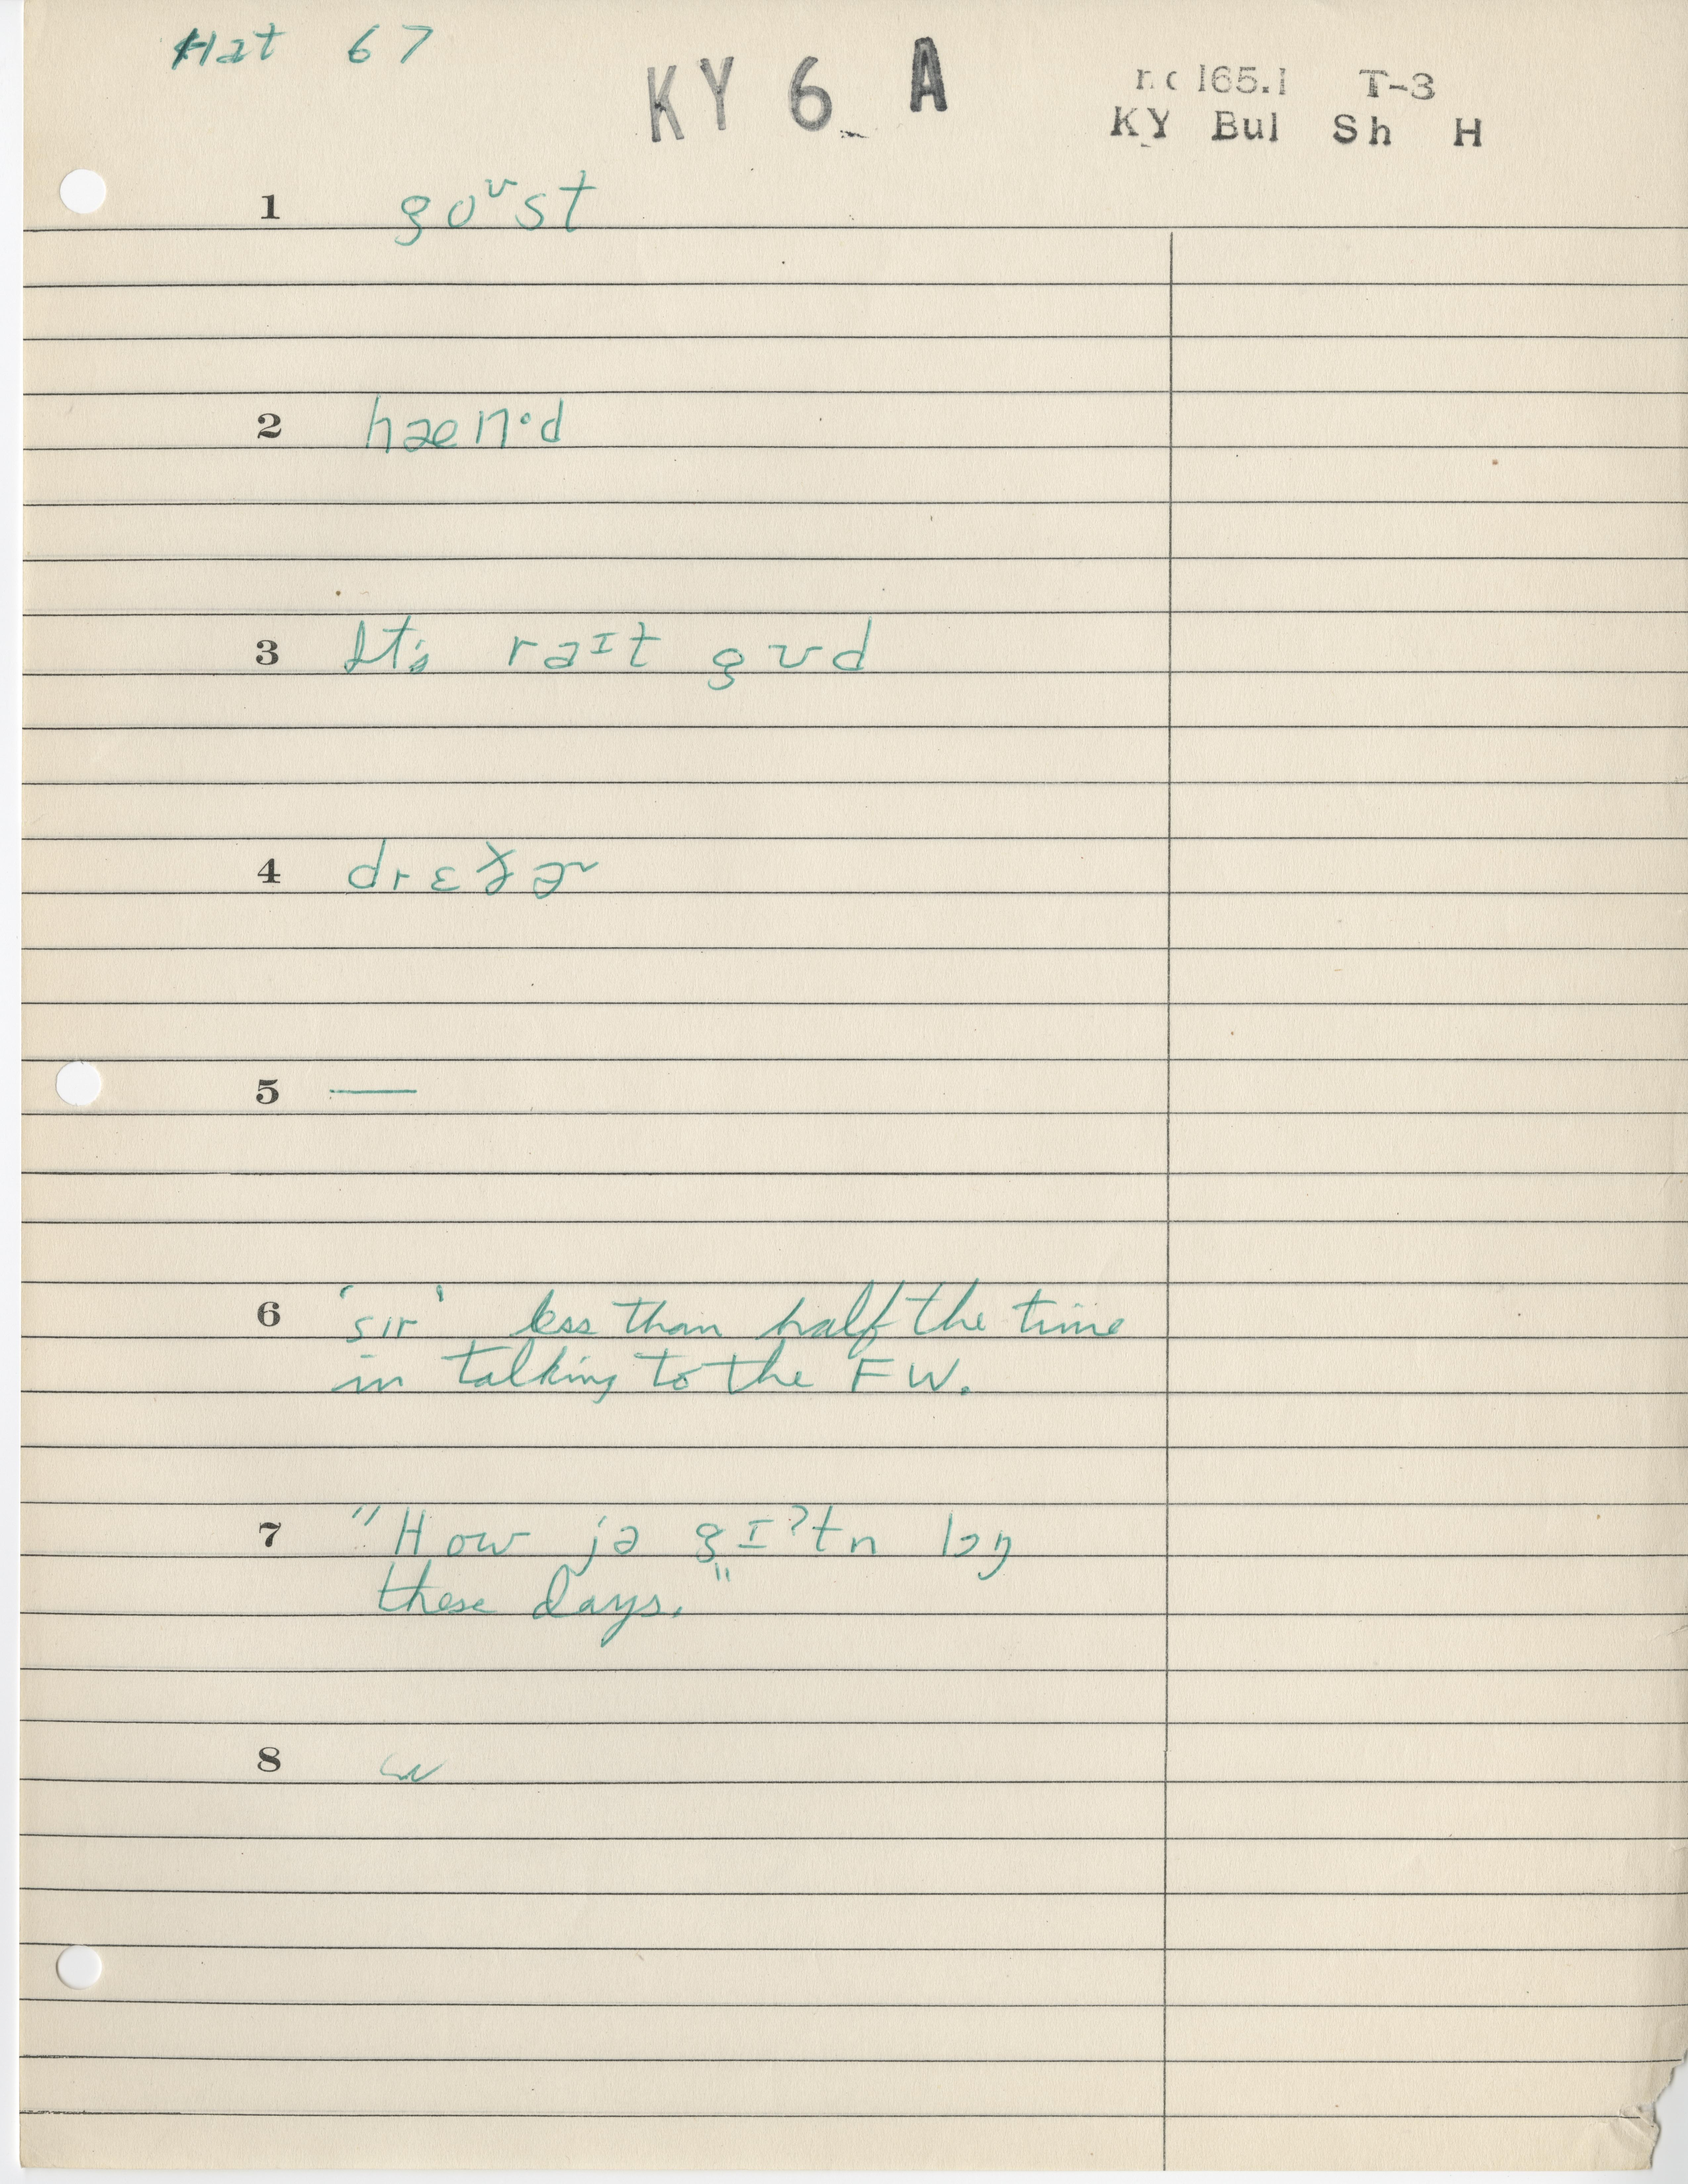 Hat 67
KY 6 A
no 165.1 T-3
KY Bul Sh H
1 goᶷst
2 hæn·d
3 It's raɪt gʊd
4 drɛɣɚ
5 —
6 'sir' less than half the time
in talking to the FW.
7 "How jə gɪʔtn lɔŋ
these days."
8